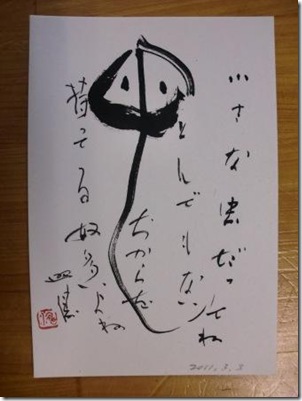 小さな虫だってね
とんでもない
ちからを
持ってる奴多いよね
2011.3.8